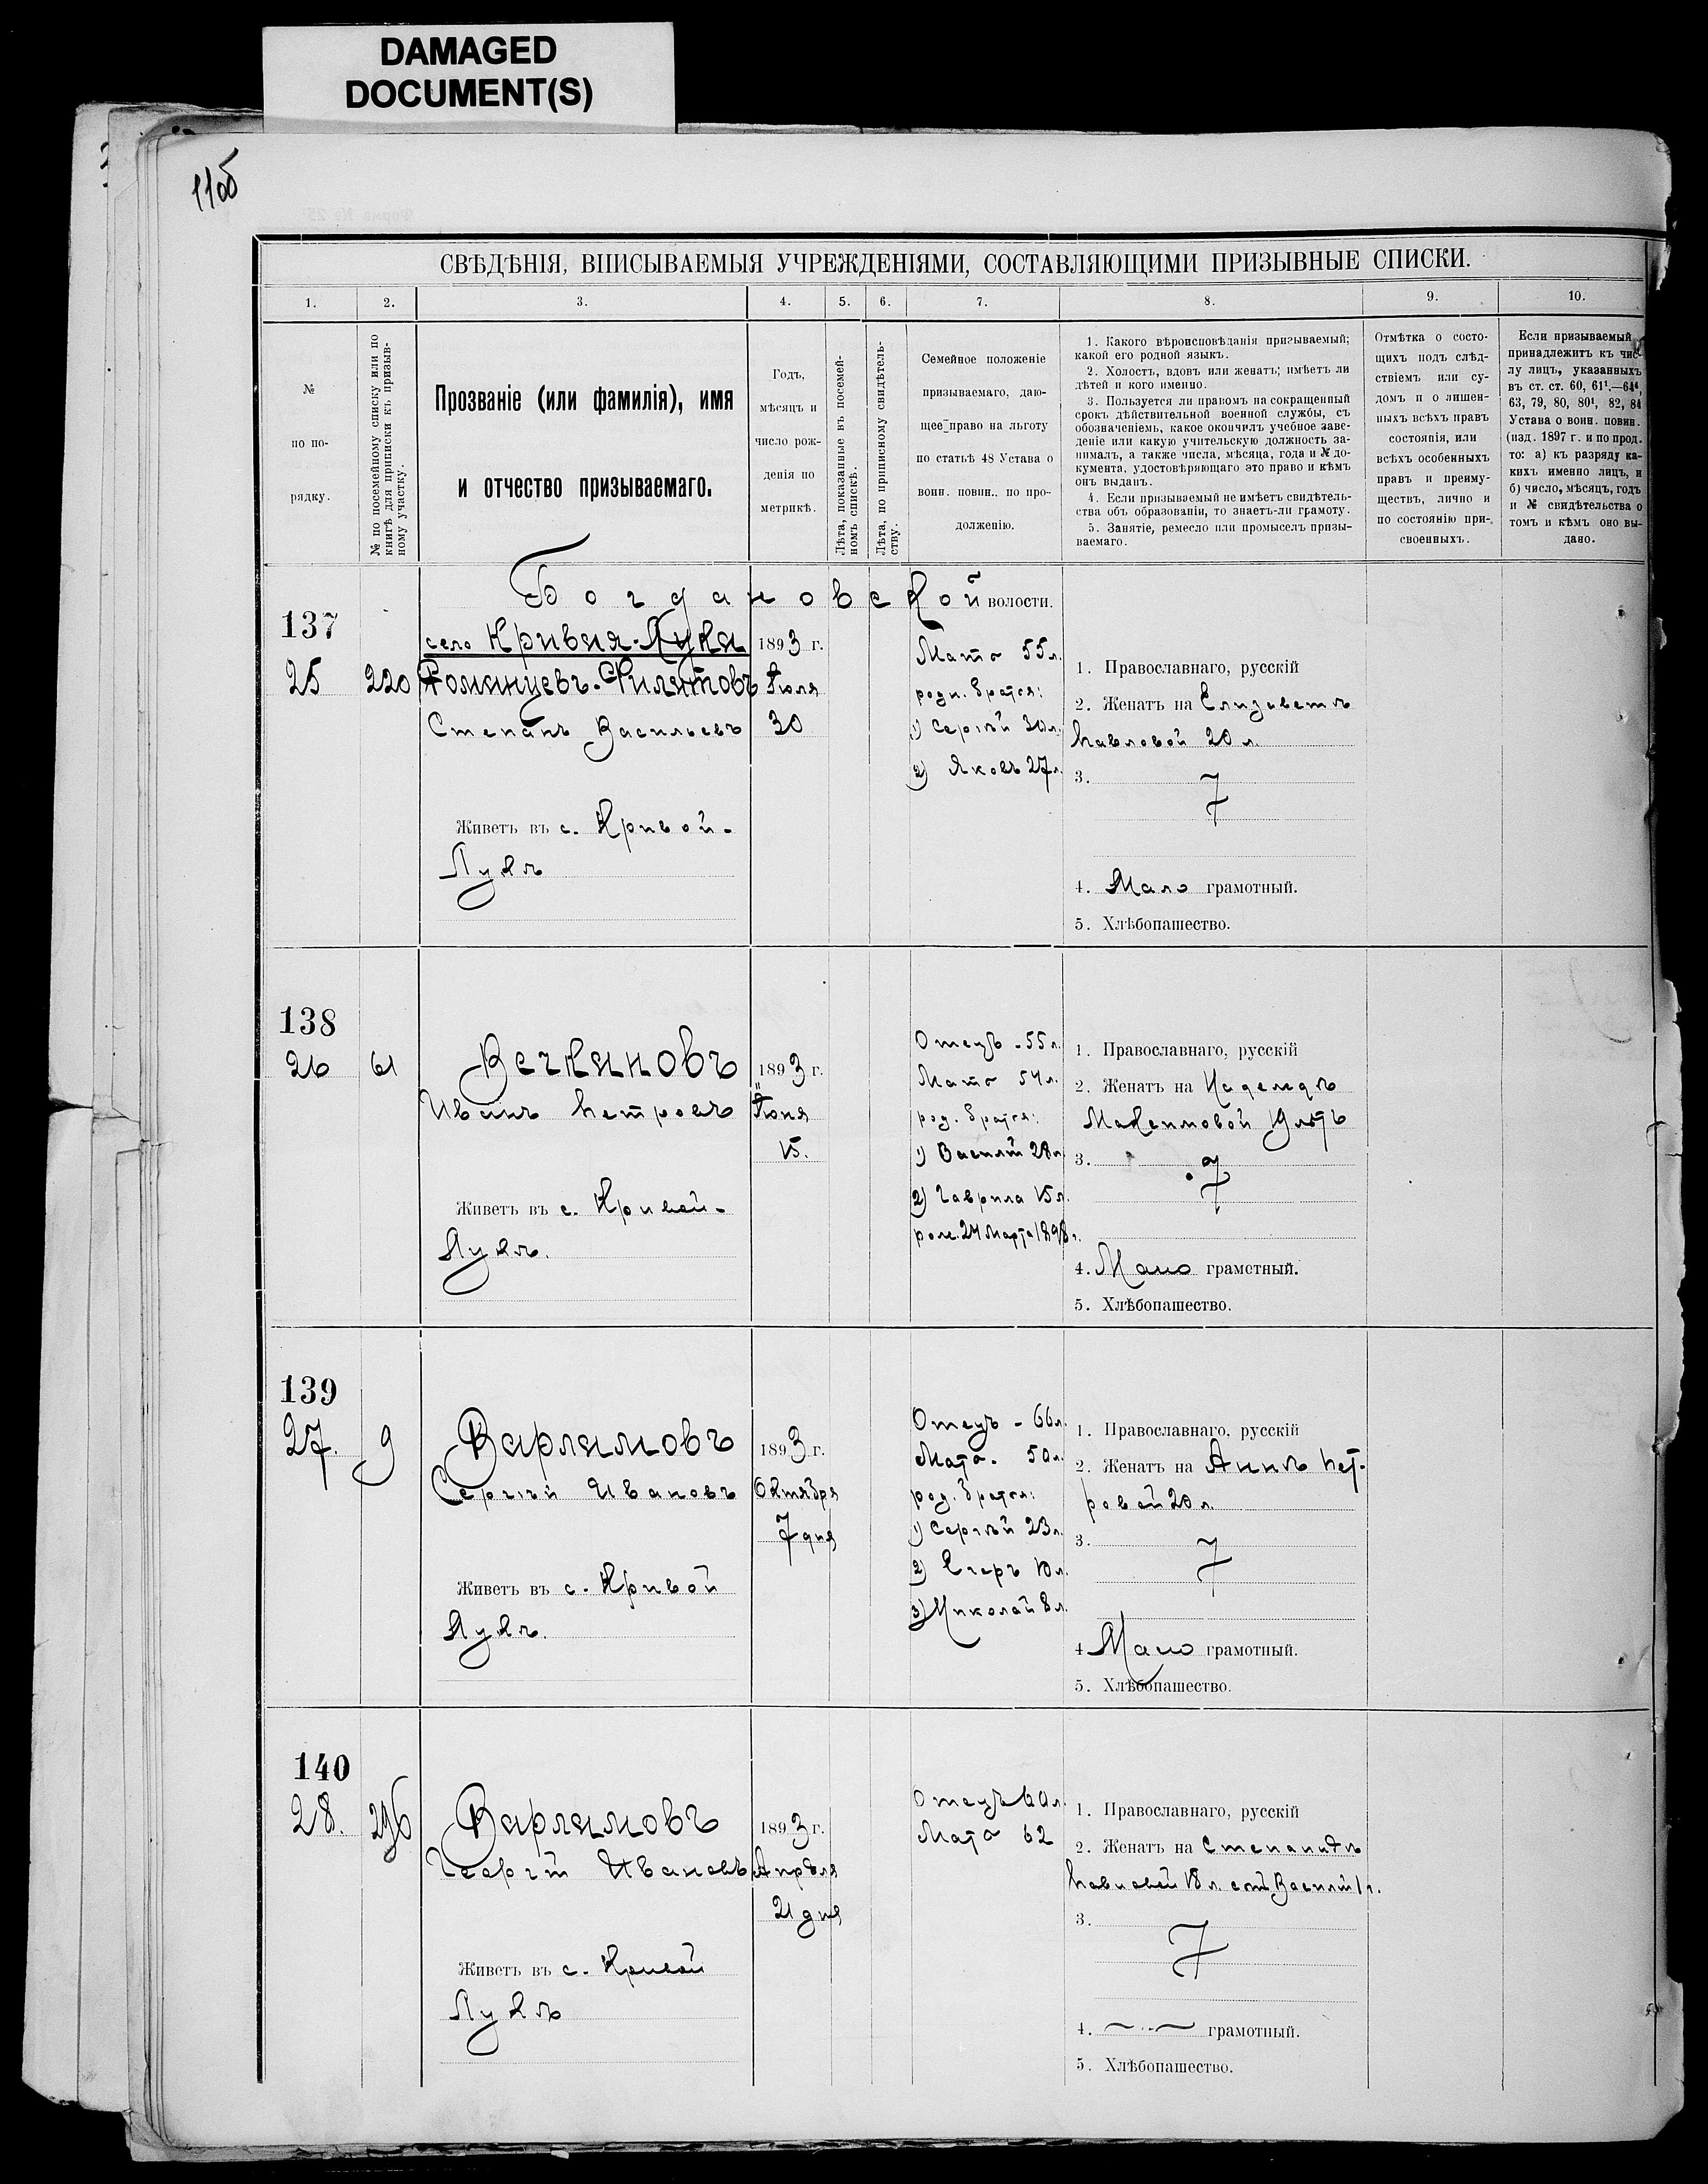 DAMAGED
DOCUMENT(S)
110б
СВѢДѢНІЯ, ВПИСЫВАЕМЫЯ УЧРЕЖДЕНІЯМИ, СОСТАВЛЯЮЩИМИ ПРИЗЫВНЫЕ СПИСКИ.
1. 2. 3. 4. 5. 6. 7. 8. 9. 10.
№
по по-
рядку.
№ по посемейному списку или по
книгѣ для приписки къ призыв-
ному участку.
Прозваніе (или фамилія), имя
и отчество призываемаго.
Годъ,
мѣсяцъ и
число рож-
денія по
метрикѣ.
Лѣта, показанные въ посемей-
номъ спискѣ.
Лѣта, по приписному свидѣтель-
ству.
Семейное положеніе
призываемаго, даю-
щее право на льготу
по статьѣ 48 Устава о
воин. повин., по про-
долженію.
1. Какого вѣроисповѣданія призываемый;
какой его родной языкъ.
2. Холостъ, вдовъ или женатъ; имѣетъ ли
дѣтей и кого именно.
3. Пользуется ли правомъ на сокращенный
срокъ дѣйствительной военной службы, съ
обозначеніемъ, какое окончилъ учебное заве-
деніе или какую учительскую должность за-
нималъ, а также числа, мѣсяца, года и № до-
кумента, удостовѣряющаго это право и кѣмъ
онъ выданъ.
4. Если призываемый не имѣетъ свидѣтель-
ства объ образованіи, то знаетъ-ли грамоту.
5. Занятіе, ремесло или промыселъ призы-
ваемаго.
Отмѣтка о состо-
щихъ подъ слѣд-
ствіемъ или су-
домъ и о лишен-
ныхъ всѣхъ правъ
состоянія, или
всѣхъ особенныхъ
правъ и преиму-
ществъ, лично и
по состоянію при-
своенныхъ.
Если призываемый
принадлежитъ къ чис-
лу лицъ, указанныхъ
въ ст. ст. 60, 61¹,—64⁴,
63, 79, 80, 80¹, 82, 84
Устава о воин. повин.
(изд. 1897 г. и по прод.
то: а) къ разряду ка-
кихъ именно лицъ, и
б) число, мѣсяцъ, годъ
и № свидѣтельства о
томъ и кѣмъ оно вы-
дано.
Богдановской волости.
137
25
220
село Кривая-Лука
Фоминцевъ-Филатовъ
Степанъ Васильевъ
Живетъ въ с. Кривой-
Лукѣ
1893 г.
Іюля
30
Мать 55 л.
родн. братья:
1) Сергѣй 30 л.
2) Яковъ 27 л.
1. Православнаго, русскій
2. Женатъ на Елизаветѣ
Павловой 20 л.
3.
4. Мало грамотный.
5. Хлѣбопашество.
138
26
61
Вечкановъ
Иванъ Петровъ
Живетъ въ с. Кривой-
Лукѣ.
1893 г.
Іюня
15.
Отецъ - 55 л.
Мать 54 л.
род. братья:
1) Василій 28 л.
2) Гаврила 15 л.
рож. 24 Марта 1898 г.
1. Православнаго, русскій
2. Женатъ на Надеждѣ
Максимовой 19 лѣтъ
3.
4. Мало грамотный.
5. Хлѣбопашество.
139
27.
9
Варламовъ
Сергѣй Ивановъ
Живетъ въ с. Кривой
Лукѣ.
1893 г.
Октября
7 дня
Отецъ - 66 л.
Мать. 50 л.
род. братья:
1) Сергѣй 23 л.
2) Егоръ 10 л.
3) Николай 8 л.
1. Православнаго, русскій
2. Женатъ на Аннѣ Пет-
ровой 20 л.
3.
4 Мало грамотный.
5. Хлѣбопашество.
140
28.
296
Варламовъ
Георгій Ивановъ
Живетъ въ с. Кривой
Лукѣ
1893 г.
Апрѣля
21 дня
Отецъ 60 л.
Мать 62
1. Православнаго, русскій
2. Женатъ на Степанидѣ
Павловой 18 л. сынъ Василій 1 г.
3.
4. грамотный.
5. Хлѣбопашество.